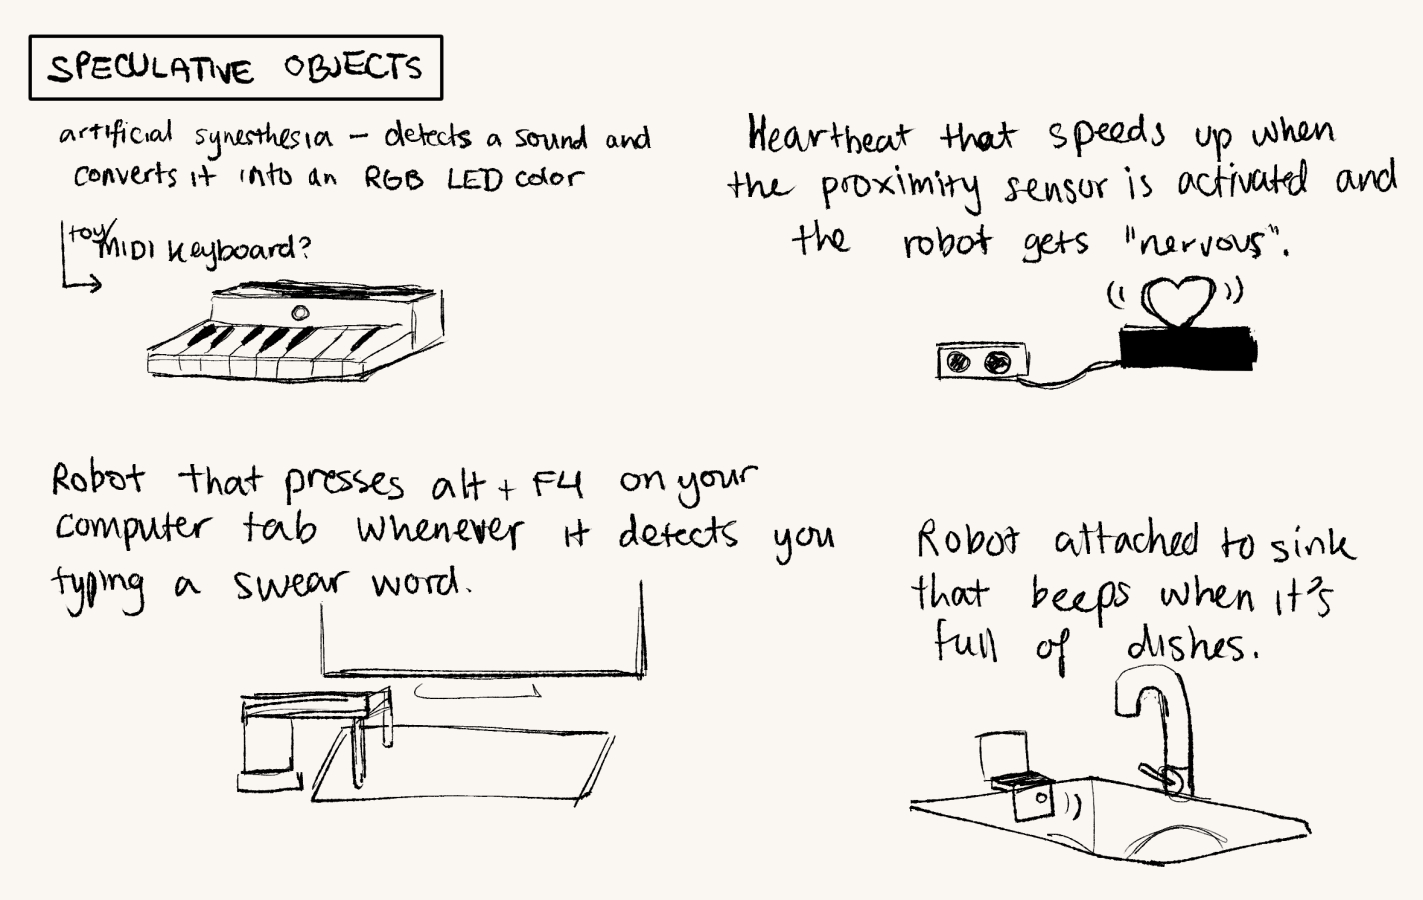 SPECULATIVE OBJECTS
artificial synesthesia – detects a sound and
converts it into an RGB LED color
toy/MIDI keyboard?
Heartbeat that speeds up when
the proximity sensor is activated and
the robot gets "nervous".
Robot that presses alt + F4 on your
computer tab whenever it detects you
typing a swear word.
Robot attached to sink
that beeps when it's
full of dishes.